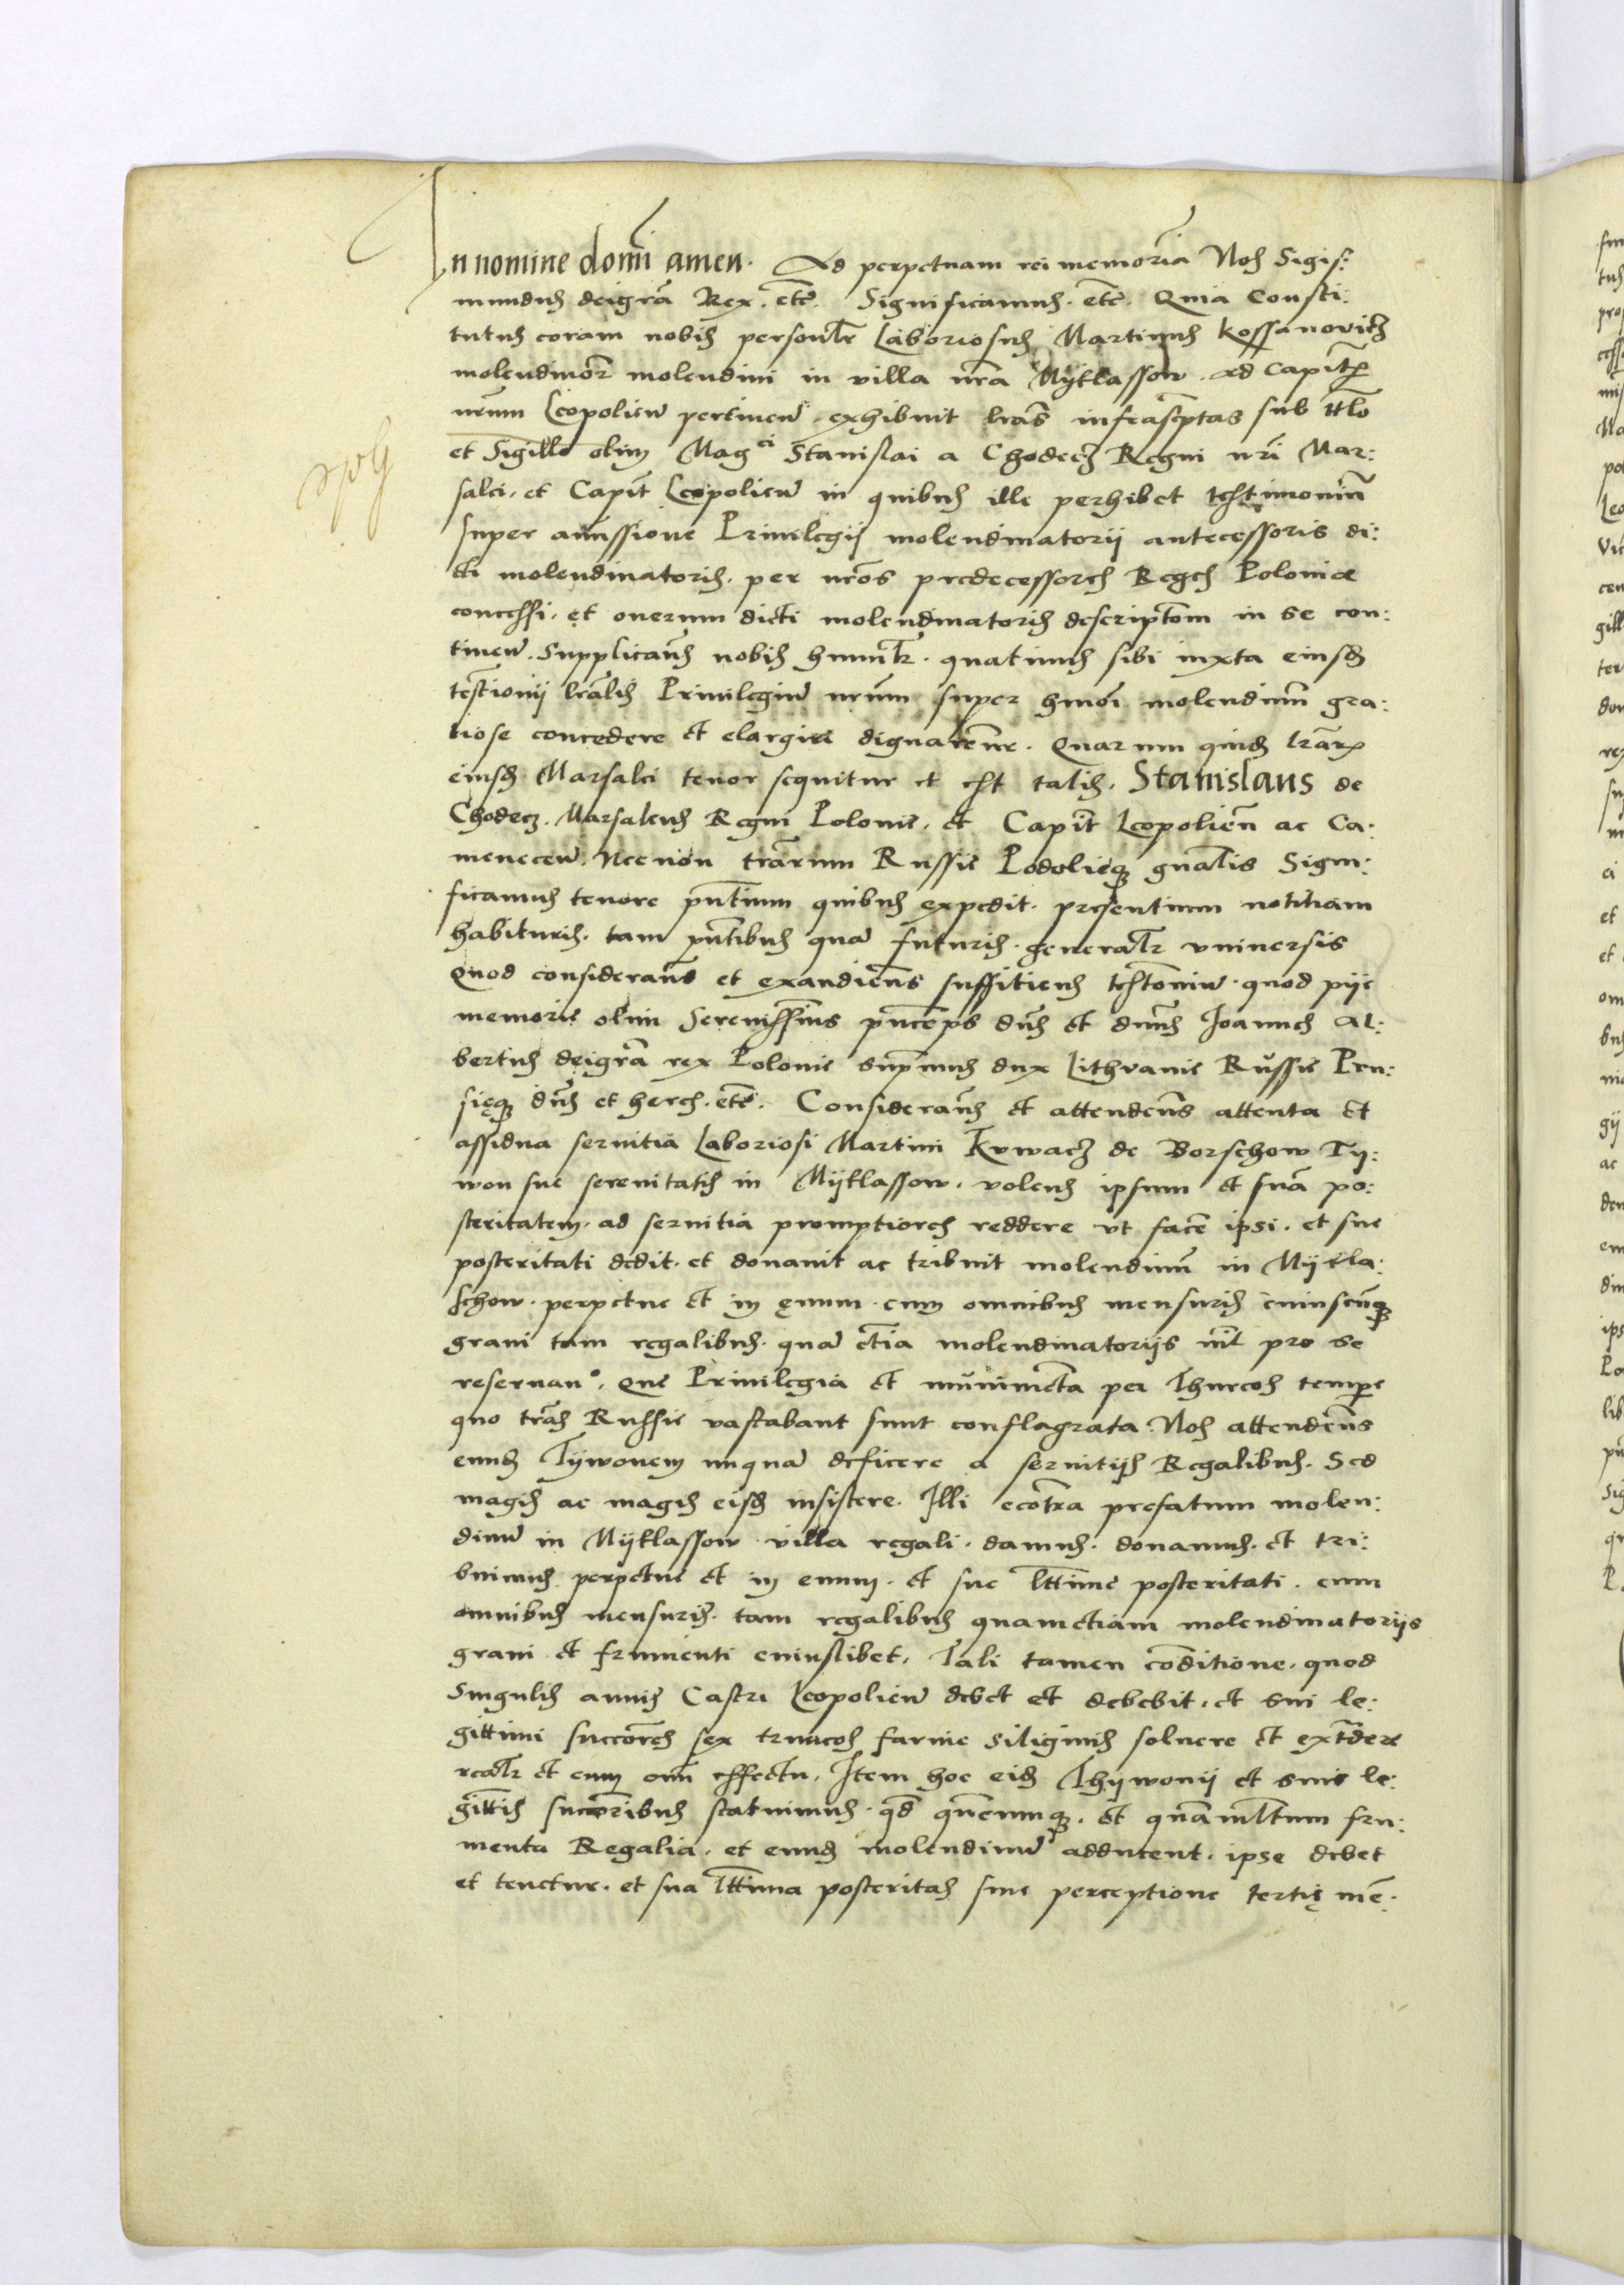 In nomine domĩ amen. Ad perpetuam rei memoriã Nos Sigis:
mundus deigrã Rex. etc̃. Significamus. etc̃. Quia Consti:
tutus coram nobis personlr̃ Laboriosus Martinus Kossanovicz
molendinor̃ molendini in villa nrã Mytlassow. ad Capitẽ
nrũm Leopolien̄ pertinen̄. exhibuit lrãs infrascp̃tas sub ttlõ
et Sigillo olim Magci Stanislai a Chodecz Regni nrĩ Mar:
salci. et Capit̃ Leopolien̄ in quibus ille perhibet testimoniũ
super amissione Privilegij molendinatorii antecessoris di:
cti molendinatoris. per nrõs predecessores Reges Poloniæ
concessi. et onerum dicti molendinatoris descriptõm in se con:
tinen̄. Supplicaũs nobis humilr̃. quatinus sibi iuxta eiusd̃
testionij lrãlis Privilegiũ nrũm super hmõi molendinũ gra:
tiose concedere et elargiri dignaremũr. Quarum quid̃ lrãrȝ
eiusd̃ Marsalci tenor sequitur et est talis. Stanislaus de
Chodecz. Marsalcus Regni Polonie. et Capit̃ Leopolien̄ ac Ca:
menecen̄. Necnon trãrum Russie Podolieqȝ gnãlis Signi:
ficamus tenore pñtium quibus expedit. presentium notitiam
habituris. tam pñtibus quã futuris. generalr̃ universis
Quod considerañs et exaudieñs suffitiens testoniũ. quod pije
memorie olim Serenissimũs pñceps dñs et dnũs Joannes Al:
bertus deigrã rex Polonie supr̃mus dux Lithvanie Russie Pru:
sięqȝ dñs et heres. etc̃. Considerañs et attendeñs attenta et
assidua servitia Laboriosi Martini Kvwacz de Borschow Ty:
won sue serenitatis in Mytlassow. volens ipsum et suã po:
steritatem. ad servitia promptiores reddere ut facẽ ipsi. et sue
posteritati dedit. et donavit ac tribuit molendinũ in Mytla:
schow. perpetue et in ęuum. cum omnibus mensuris cuiuscũqȝ
grani tam regalibus. quã etiã molendinatoriis nil̃ pro se
reservano. Que Privilegia et munimẽta per Thurcos tempẽ
quo trãs Russie vastabant sunt conflagrata. Nos attendeñs
eund̃ Tywonem nuquã deficere a servitijs Regalibus. Sed
magis ac magis eisd̃ insistere. Illi ecoñtra prefatum molen:
dinũ in Mytlassow villa regali. damus. donamus. et tri:
buimus perpetue et in euum. et sue lttime posteritati. cum
omnibus mensuris. tam regalibus quametiam molendinatoriis
grani et frumenti cuiuslibet. Tali tamen cõditione. quod
Singulis annis Castri Leopolien̄ debet et debebit. et sui le:
gittimi succõres sex truncos farine siliginis solvere et extr̃dere
realr̃ et cum omñi effectu. Item hoc eid̃ Thywonij et suis le:
gittĩs succoribus statuimus. qd̃ queñcunqȝ. et quãmltum fru:
menta Regalia. et eund̃ molendinũ adducent. ipse debet
et tenetur. et sua lttima posteritas sine perceptione tertię mẽ.